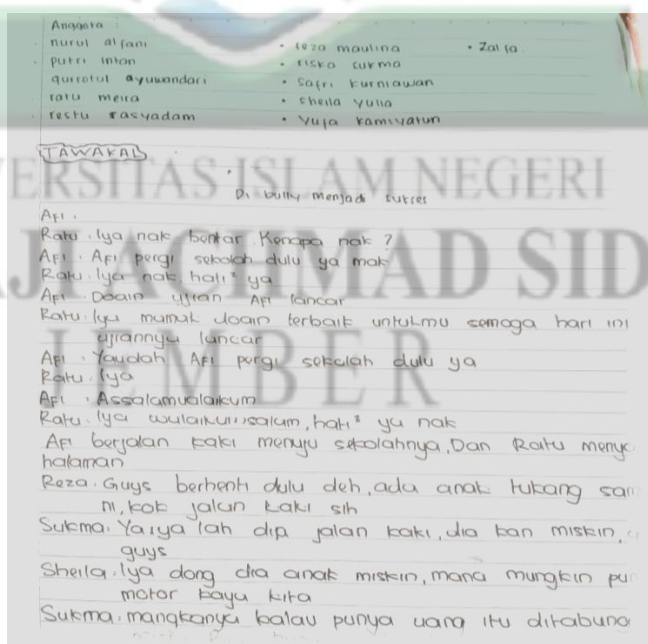 Anggota :
nurul alfani
putri intan
qurrotul ayuwandari
ratu meira
restu rasyadam
• reza maulina
• riska sukma
• safri kurniawan
• sheila yulia
• yufa kamiyatun
• Zalfa
TAWAKAL
Di bully menjadi sukses
Afi .
Ratu . Iya nak bentar. Kenapa nak ?
Afi . Afi pergi sekolah dulu ya mak
Ratu . Iya nak hati² ya
Afi . Doain ujian Afi lancar
Ratu . Iya mamak doain terbaik untukmu semoga hari ini
ujiannya lancar
Afi . Yaudah Afi pergi sekolah dulu ya
Ratu . Iya
Afi . Assalamualaikum
Ratu . Iya walaikumssalam, hati² ya nak
Afi berjalan kaki menuju sekolahnya, Dan Ratu
halaman
Reza . Guys berhenti dulu deh, ada anak tukang
ni, kok jalan kaki sih
Sukma . Ya iya lah dia jalan kaki, dia kan miskin,
guys
Sheila . Iya dong dia anak miskin, mana mungkin
motor kaya kita
Sukma . mangkanya kalau punya uang itu ditabung
UNIVERSITAS ISLAM NEGERI
HAJI ACHMAD SID
JEMBER